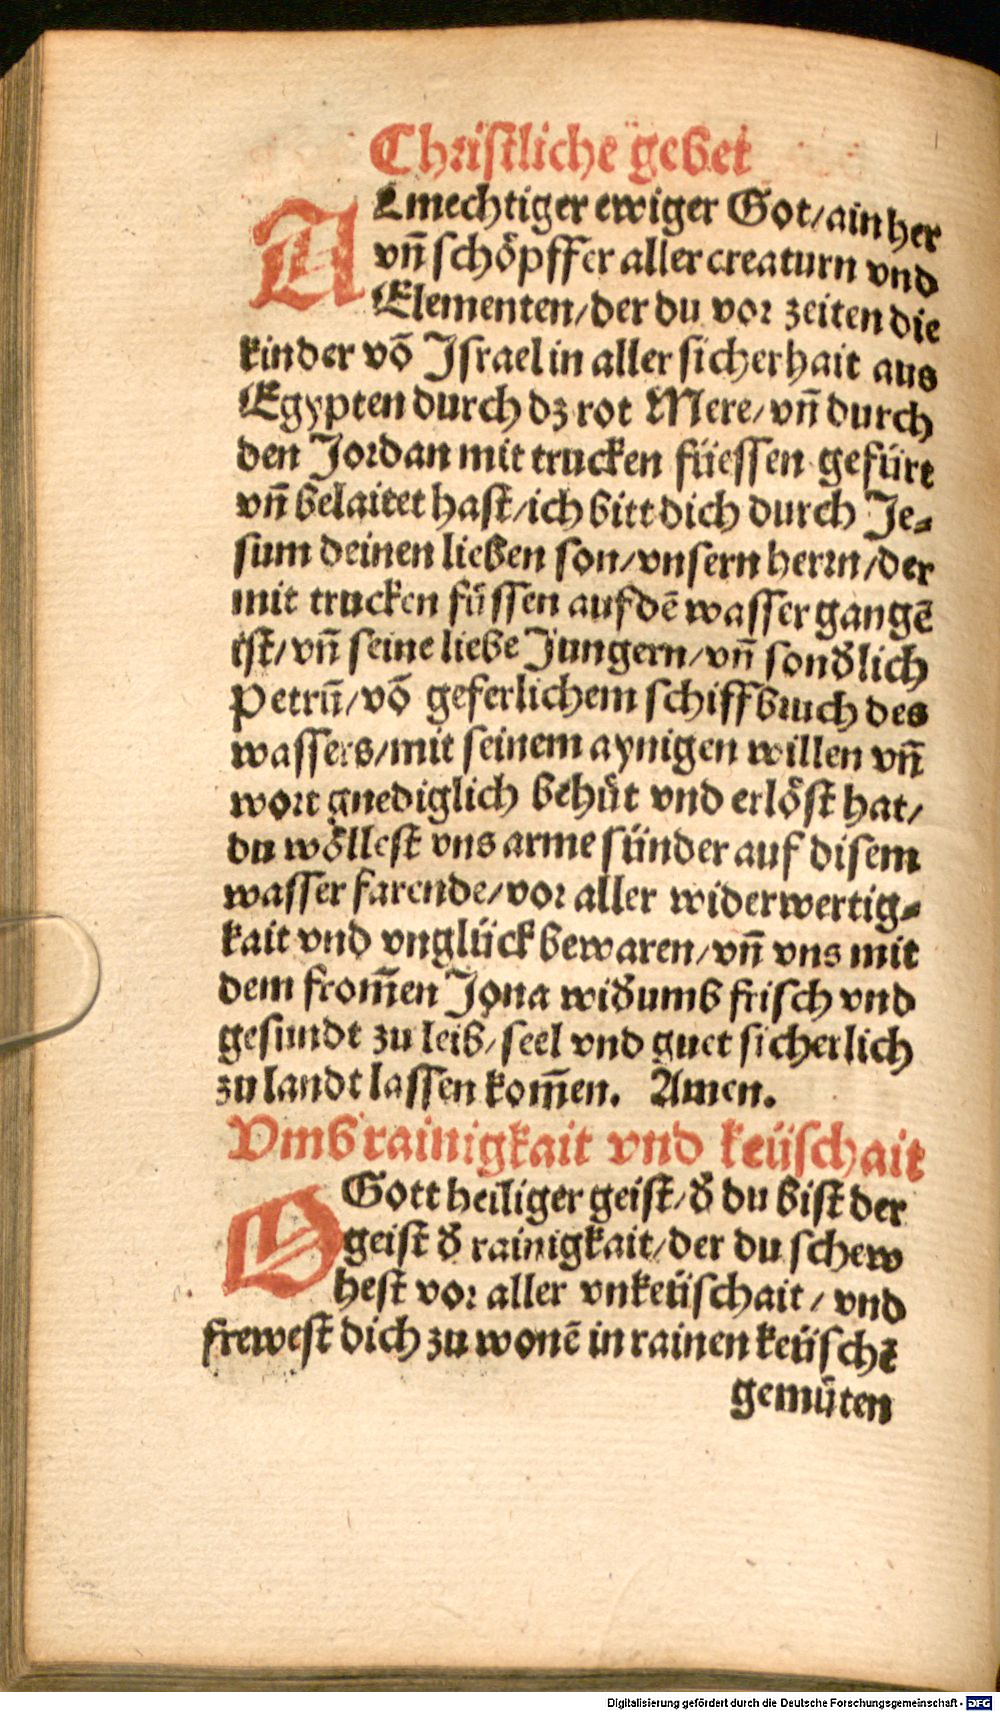 Christliche gebet
ALmechtiger ewiger Got/ain her
vñ schöpffer aller creaturn vnd
Elementen/der du vor zeiten die
kinder võ Israel in aller sicherhait aus
Egypten durch dz rot Mere/vñ durch
den Jordan mit trucken füessen gefürt
vñ belaitet hast/ich bitt dich durch Je⸗
sum deinen lieben son/vnsern herrn/der
mit trucken füssen auf dē wasser gangē
ist/vñ seine liebe Jungern/vñ sonđlich
Petrũ/võ geferlichem schiffbruch des
wassers/mit seinem aynigen willen vñ
wort gnediglich behüt vnd erlöst hat/
du wöllest vns arme sünder auf disem
wasser farende/vor aller widerwertig⸗
kait vnd vnglück bewaren/vñ vns mit
dem from̃en Jona wiđumb frisch vnd
gesundt zu leib/seel vnd guet sicherlich
zu landt lassen kom̃en. Amen.
Vmb rainigkait vnd keüschait
O Gott heiliger geist/đ du bist der
geist đ rainigkait/der du schew
hest vor aller vnkeüschait/vnd
frewest dich zu wonē in rainen keüschē
gemüten
Digitalisierung gefördert durch die Deutsche Forschungsgemeinschaft - DFG